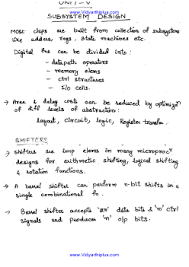 www.Vidyarthiplus.com
UNIT-V
SUBSYSTEM DESIGN
Most chips are built from collection of subsystems
like adders, regs, state machines etc.
Digital fns can be divided into:
- datapath operators
- memory elems
- ctrl structures
- I/o cells.
→ Area & delay costs can be reduced by optimizn
of diff levels of abstraction:
Layout, circuit, logic, Register transfer.
SHIFTERS
→ Shifters are imp elems in many microproc
designs for arithmetic shifting, logical shifting
& rotation functions.
→ A barrel shifter can perform n-bit shifts in a
single combinational fn.
→ Barrel shifter accepts '2n' data bits & 'n' ctrl
signals and produces 'n' o/p bits.
www.Vidyarthiplus.com